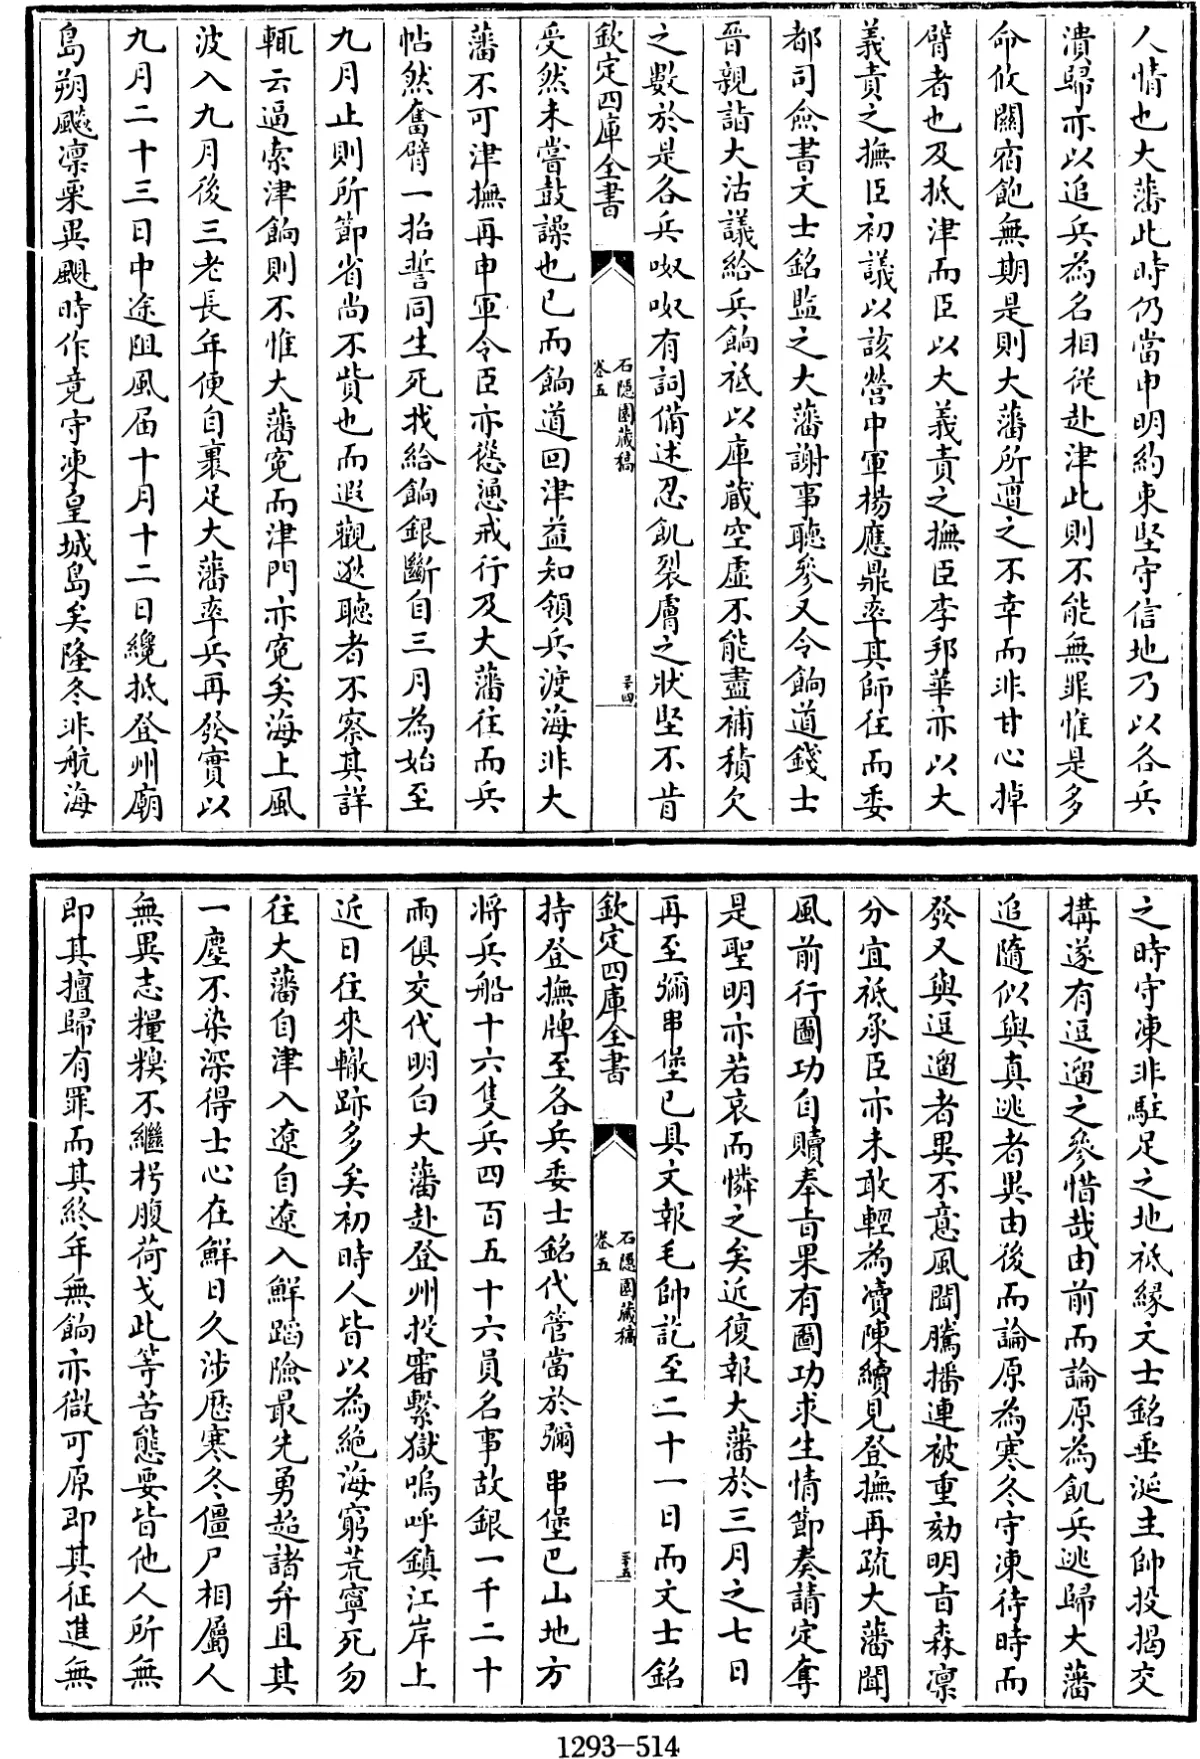 人情也大藩此時仍當申明約束堅守信地乃以各兵
潰歸亦以追兵為名相從赴津此則不能無罪惟是多
命攸關宿飽無期是則大藩所遭之不幸而非甘心掉
臂者也及抵津而臣以大義責之撫臣李邦華亦以大
義責之撫臣初議以該營中軍楊應鼎率其師往而委
都司僉書文士銘監之大藩謝事聽參又令餉道錢士
晉親詣大沽議給兵餉祇以庫藏空虛不能盡補積欠
之數於是各兵呶呶有詞備述忍飢裂膚之狀堅不肯
欽定四庫全書
石隱園藏稿
卷五
三十四
受然未嘗鼓譟也已而餉道回津益知領兵渡海非大
藩不可津撫再申軍令臣亦慫慂戒行及大藩往而兵
帖然奮臂一招誓同生死找給餉銀斷自三月為始至
九月止則所節省尚不貲也而遐觀逖聽者不察其詳
輒云逼索津餉則不惟大藩寃而津門亦寃矣海上風
波入九月後三老長年便自裹足大藩率兵再發實以
九月二十三日中途阻風届十月十二日纔抵登州廟
島朔飈凛栗異颶時作竟守凍皇城島矣隆冬非航海
之時守凍非駐足之地祇緣文士銘垂涎主帥投揭交
搆遂有逗遛之參惜哉由前而論原為飢兵逃歸大藩
追隨似與真逃者異由後而論原為寒冬守凍待時而
發又與逗遛者異不意風聞騰播連被重劾明旨森凛
分宜祇承臣亦未敢輕為瀆陳續見登撫再疏大藩聞
風前行圖功自贖奉旨果有圖功求生情節奏請定奪
是聖明亦若哀而憐之矣近復報大藩於三月之七日
再至彌串堡已具文報毛帥訖至二十一日而文士銘
欽定四庫全書
石隱園藏稿
卷五
三十五
持登撫牌至各兵委士銘代管當於彌串堡巴山地方
將兵船十六隻兵四百五十六員名事故銀一千二十
兩俱交代明白大藩赴登州投審繫獄嗚呼鎮江岸上
近日往來轍跡多矣初時人皆以為絶海窮荒寧死勿
往大藩自津入遼自遼入鮮蹈險最先勇趫諸弁且其
一塵不染深得士心在鮮日久涉歷寒冬僵尸相屬人
無異志糧糗不繼枵腹荷戈此等苦態要皆他人所無
即其擅歸有罪而其終年無餉亦微可原即其征進無
1293-514